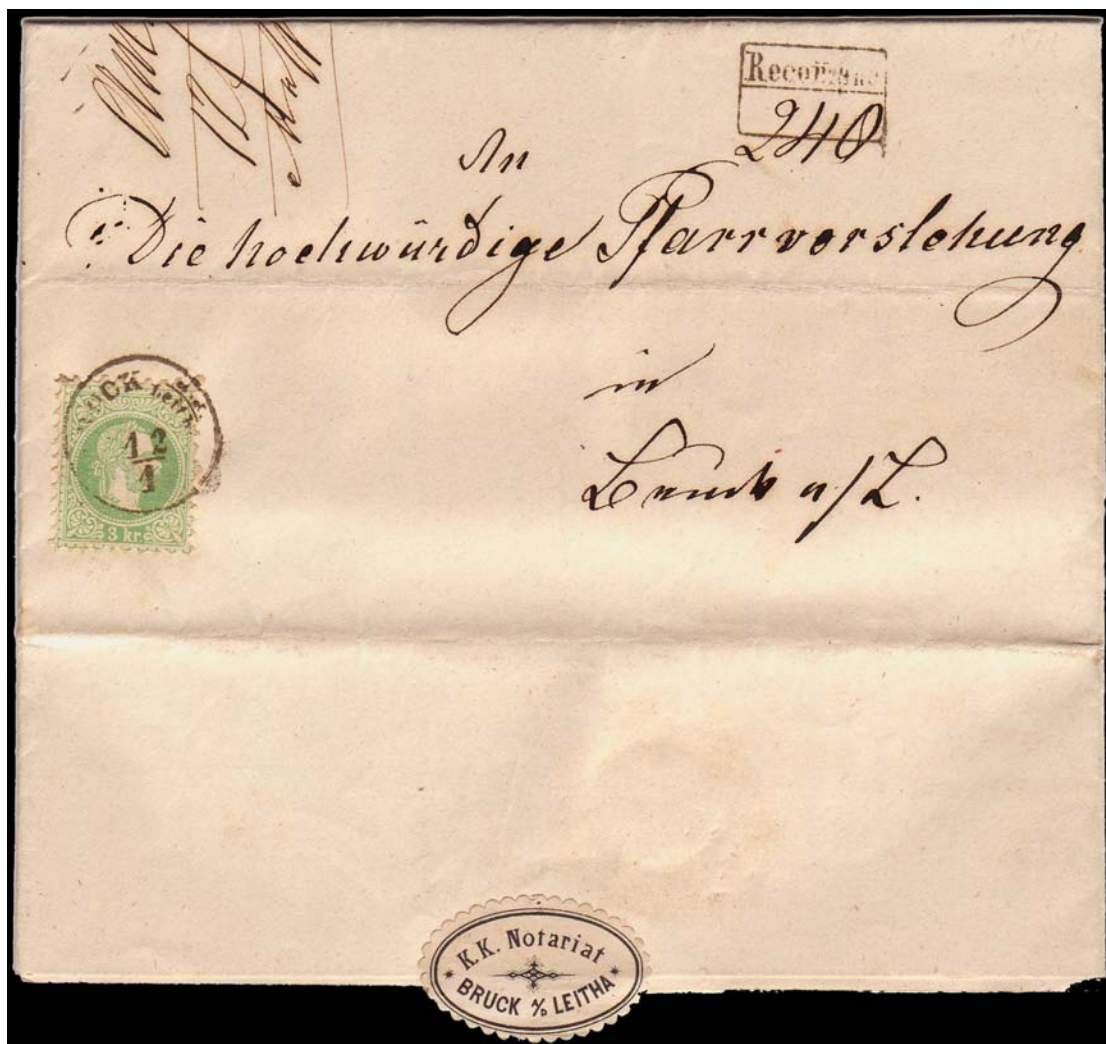 Recomm
240
An
Die hochwürdige Pfarrvorstehung
in
Bruck a/L.
BRUCK Leitha
12
1
3 kr.
K.K. Notariat
BRUCK a/D LEITHA